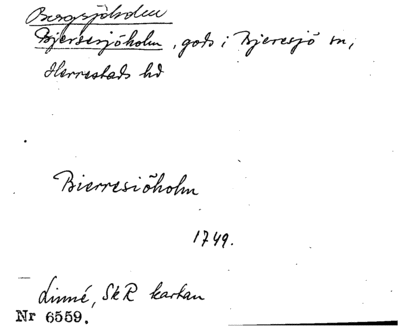 Bergsjöholm
Bjersesjöholm, gods i Bjeresjö sn,
Herrestads hd
Bierresiöholm
1749.
Linné, SkR kartan
Nr 6559.